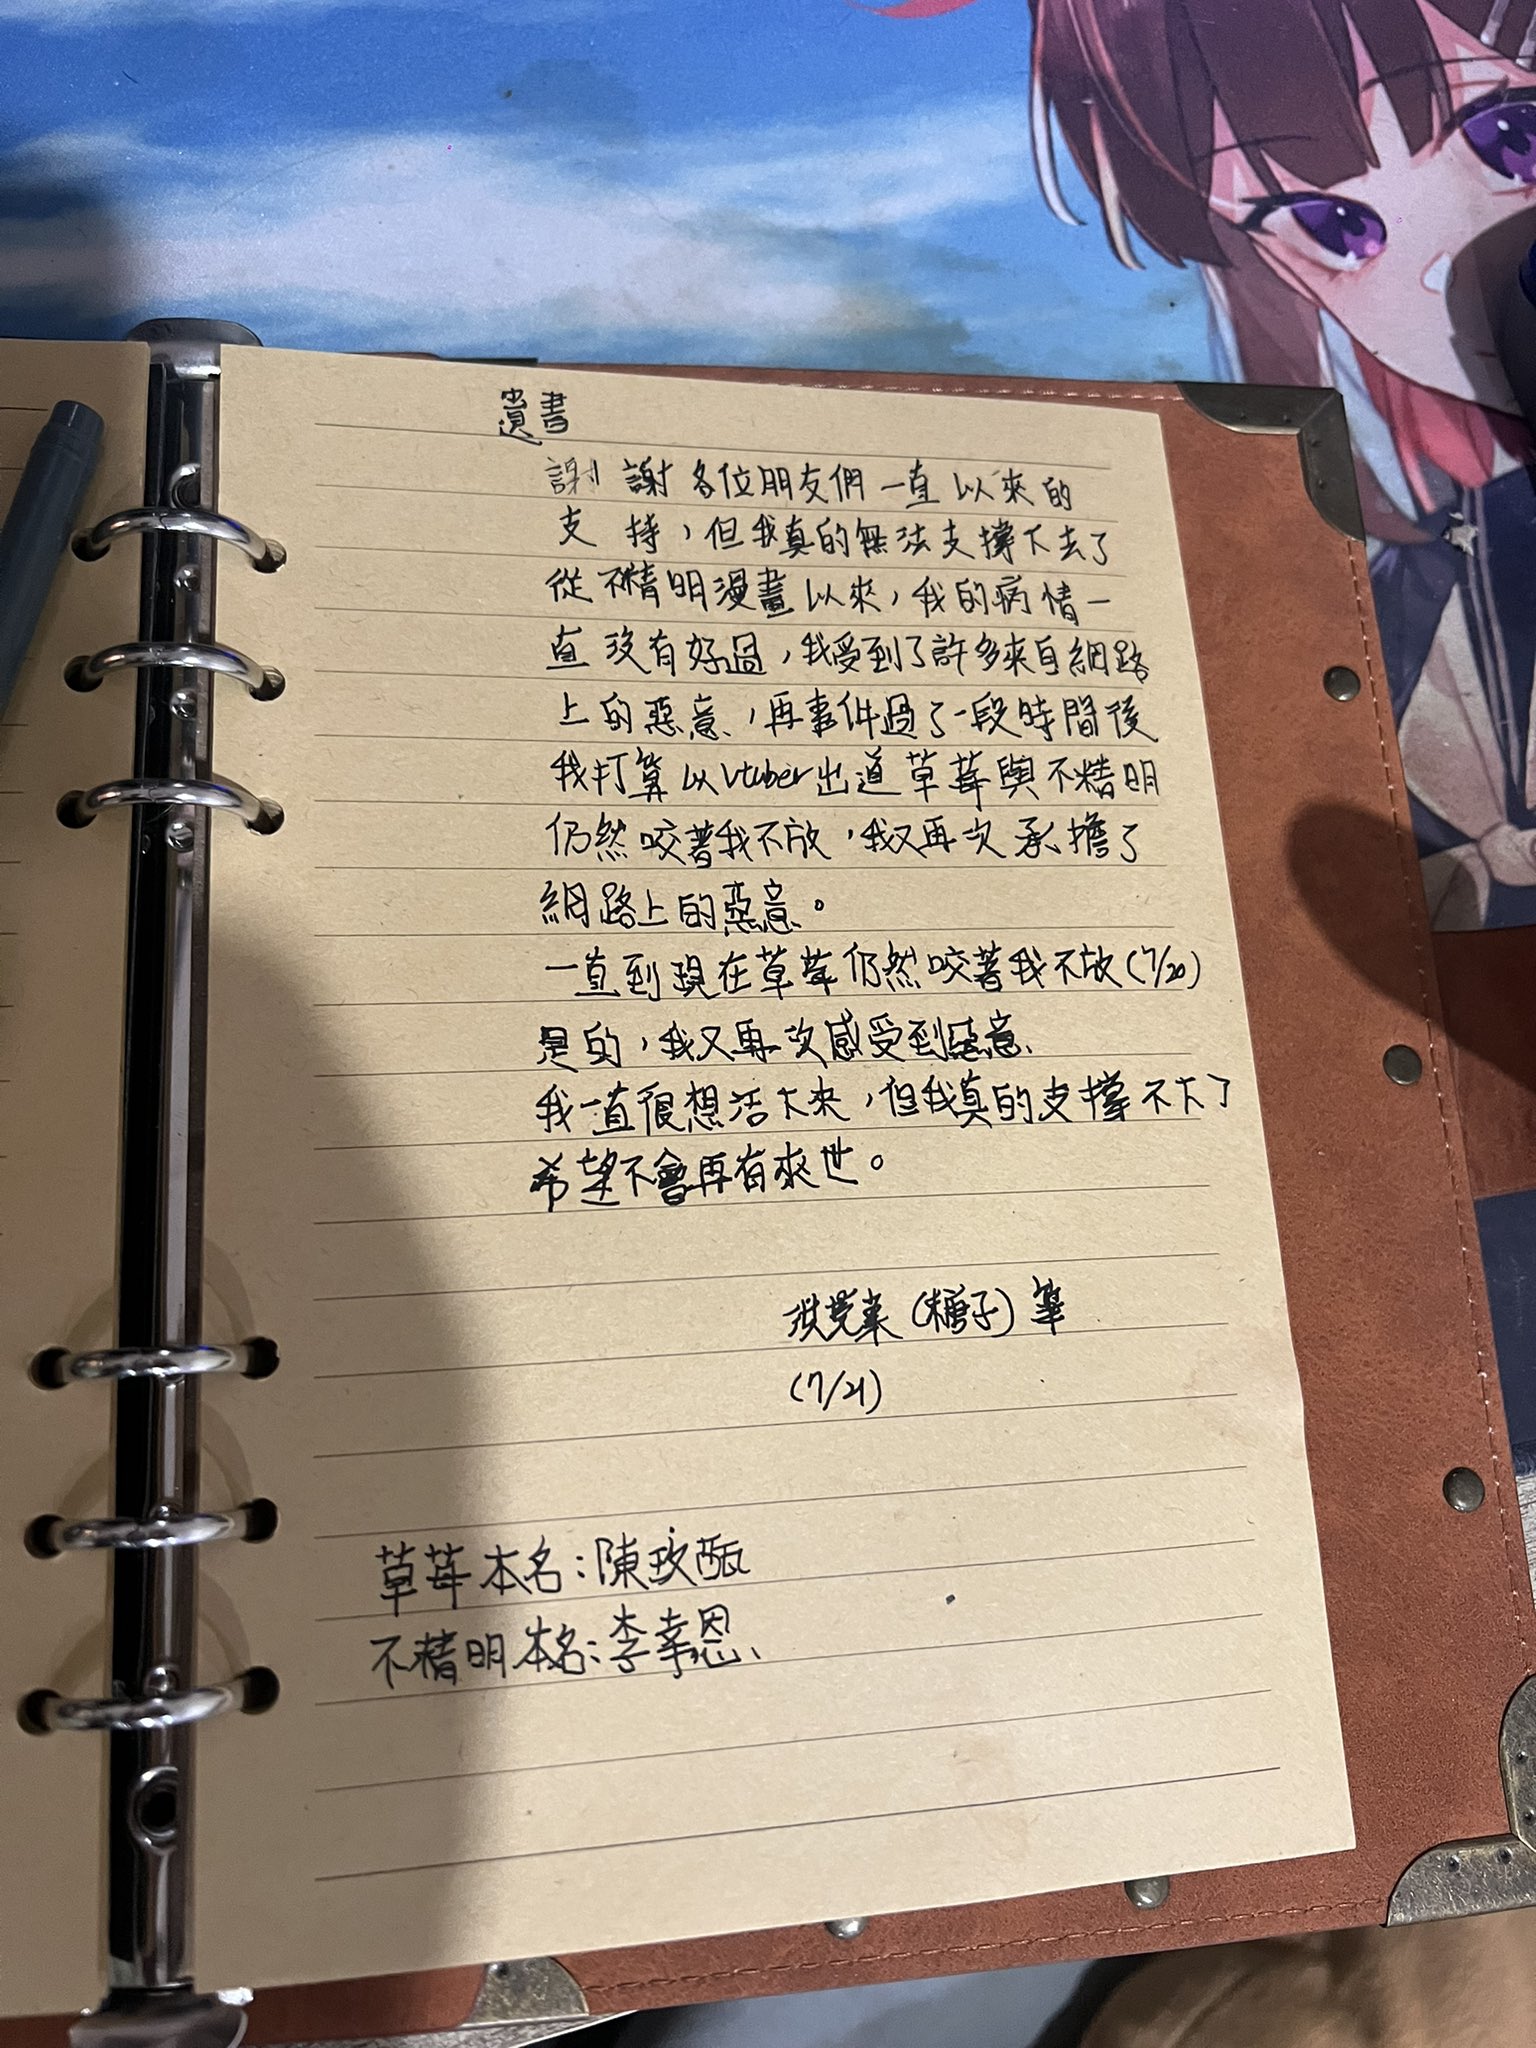 遺書
謝謝各位朋友們一直以來的
支持，但我真的無法支撐下去了
從不精明漫畫以來，我的病情一
直沒有好過，我受到了許多來自網路
上的惡意，再事件過了一段時間後
我打算以Vtuber出道草莓與不精明
仍然咬著我不放，我又再次承擔了
網路上的惡意。
一直到現在草莓仍然咬著我不放(7/20)
是的，我又再次感受到惡意
我一直很想活下來，但我真的支撐不下了
希望不會再有來世。
(糖子)筆
(7/21)
草莓本名：陳玫
不精明本名：李幸恩